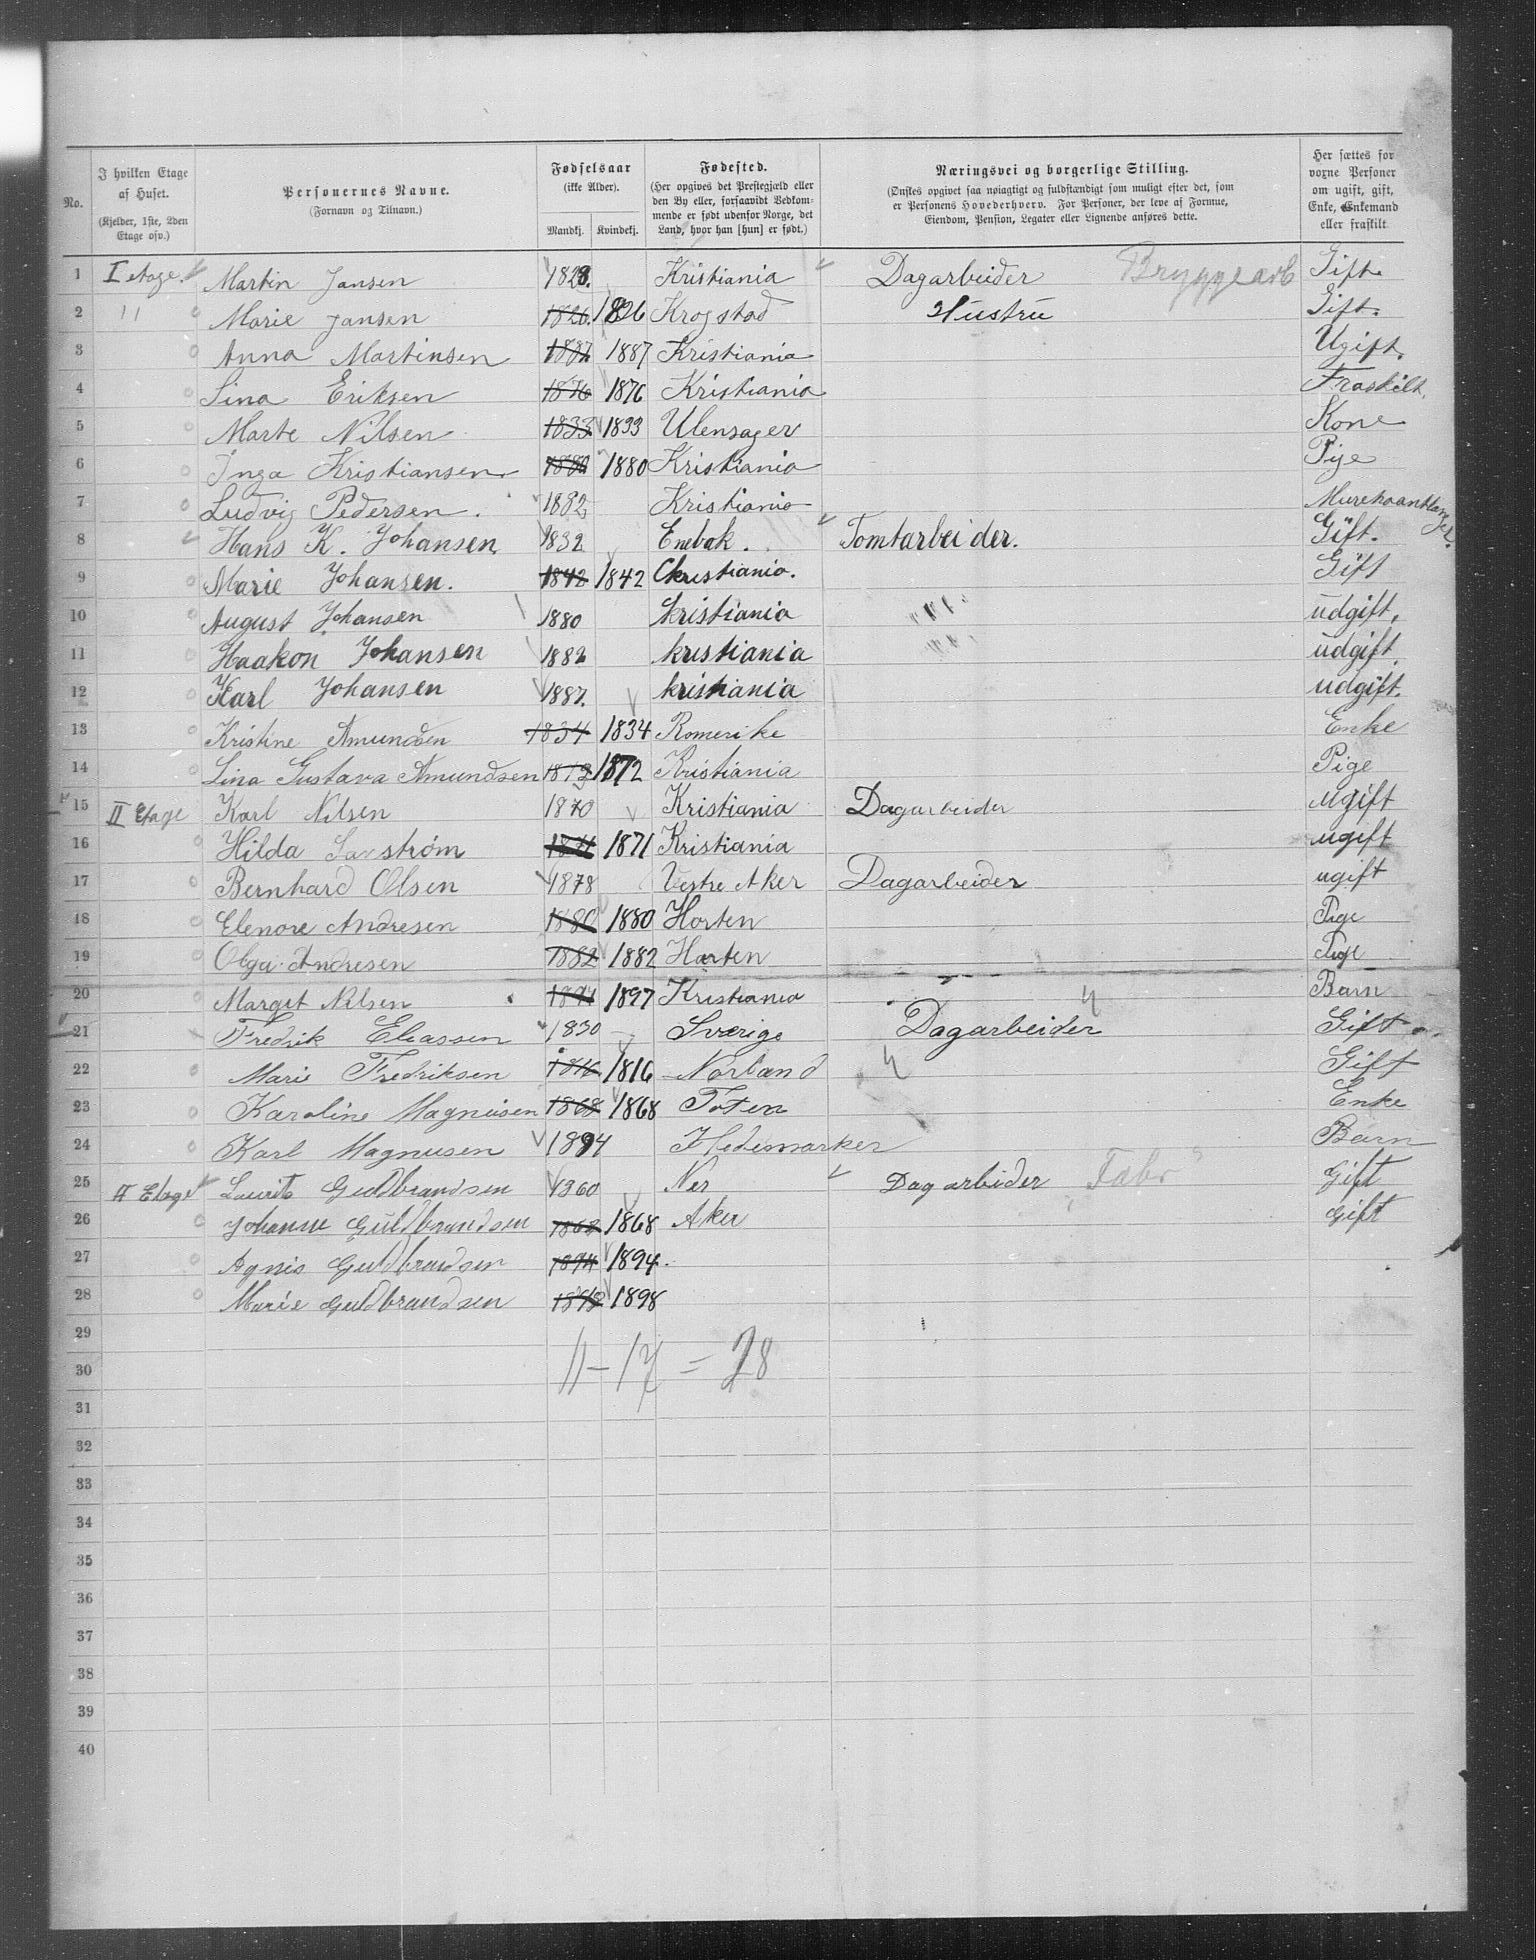 No.
I hvilken Etage af Huset. (Kjelder, 1ste, 2den Etage osv.)
Personernes Navne. (Fornavn og Tilnavn.)
Fødselsaar (ikke Alder). Mandkj. Kvindekj.
Fødested. (Her opgives det Prestegjæld eller den By eller, forsaavidt Vedkommende er født udenfor Norge, det Land, hvor han [hun] er født.)
Næringsvei og borgerlige Stilling. (Ønskes opgivet saa nøiagtigt og fuldstændigt som muligt efter det, som er Personens Hovederhverv. For Personer, der leve af Formue, Eiendom, Pension, Legater eller Lignende anføres dette.)
Her sættes for voxne Personer om ugift, gift, Enke, Enkemand eller fraskilt
1 I etage. Martin Jansen 1828. Kristiania Dagarbeider Bryggearb Gift.
2 " Marie Jansen 1826. 1826 Krogstad Hustru Gift.
3 Anna Martinsen 1887 1887 Kristiania Ugift.
4 Lina Eriksen 1876 1876 Kristiania Fraskilt.
5 Marte Nilsen 1833 1833 Ulensager Kone
6 Inga Kristiansen 1880 1880 Kristiania Pije
7 Ludvig Pedersen. 1882 Kristiania Murehaantlanger.
8 Hans K. Johansen 1832 Enebak. Tomtarbeider. Gift.
9 Marie Johansen. 1842 1842 Chrestiania. Gift
10 August Johansen 1880 kristiania " " udgift.
11 Haakon Johansen 1882 kristiania " " udgift
12 Karl Johansen 1887. kristiania udgift.
13 Kristine Amundsen 1834 1834 Romerike Enke
14 Lina Gustava Amundsen 1873 1872 Kristiania Pige
15 II Etage Karl Nilsen 1870 Kristiania Dagarbeider ugift
16 Hilda 1871 1871 Kristiania ugift
17 Bernhard Olsen 1878 Vestre Aker Dagarbeider ugift
18 Elenore Andresen 1880 1880 Horten Pige
19 Olga Andresen 1882 1882 Horten Pige
20 Margit Nilsen 1897 1897 Kristiania Barn
21 Fredrik Eliassen 1830 Sværige Dagarbeider Gift
22 Marie Fredriksen 1816 1816 Norland Gift
23 Karoline Magnusen 1868 1868 Toten Enke
24 Karl Magnusen 1894 Hedemarken Barn
25 II Etage Laurits Guldbrandsen 1860 Nes Dagarbeider Fabr Gift
26 Johanne Guldbrandsen 1868 1868 Aker Gift
27 Agnis Guldbrandsen 1894 1894.
28 Marie Guldbrandsen 1898 1898
29
11 - 17 = 28
30
31
32
33
34
35
36
37
38
39
40